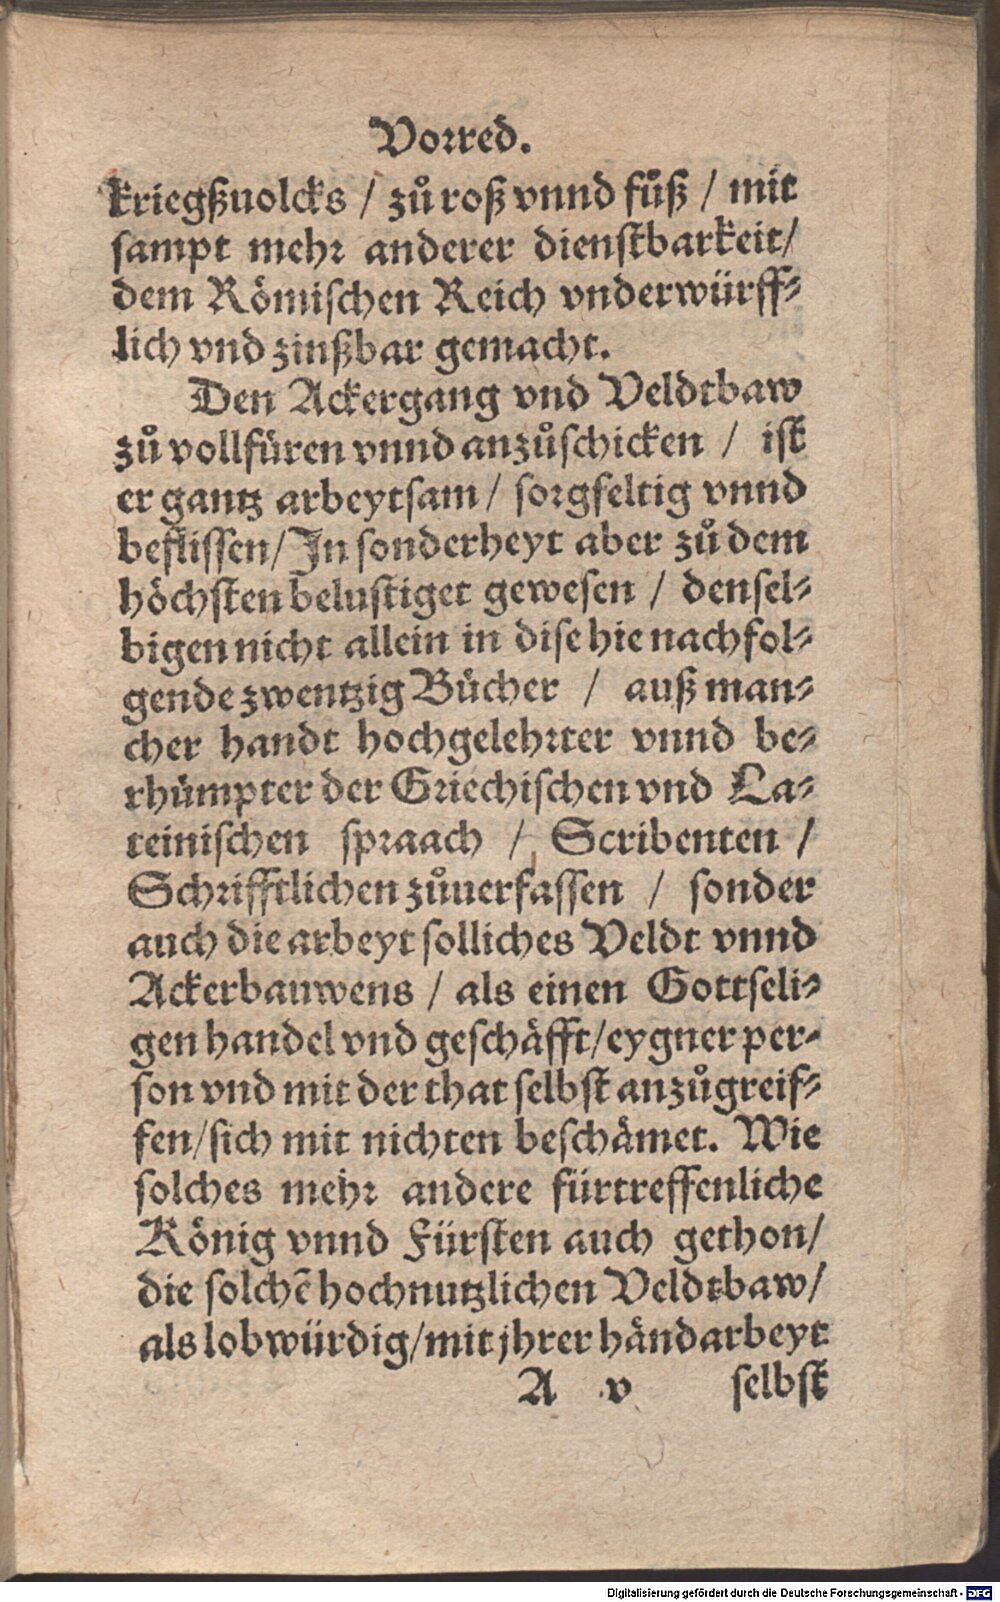 Vorred.
kriegßuolcks / zů roß vnnd fůß / mit
sampt mehr anderer dienstbarkeit/
dem Römischen Reich vnderwürff-
lich vnd zinßbar gemacht.
Den Ackergang vnd Veldtbaw
zů vollfüren vnnd anzůschicken / ist
er gantz arbeytsam / sorgfeltig vnnd
beflissen/In sonderheyt aber zů dem
höchsten belustiget gewesen / densel-
bigen nicht allein in dise hie nachfol-
gende zwentzig Bücher / auß man-
cher handt hochgelehrter vnnd be-
rhümpter der Griechischen vnd La-
teinischen spraach / Scribenten /
Schrifftlichen zůuerfassen / sonder
auch die arbeyt solliches Veldt vnnd
Ackerbauwens / als einen Gottseli-
gen handel vnd geschäfft/eygner per-
son vnd mit der that selbst anzůgreif-
fen/sich mit nichten beschämet. Wie
solches mehr andere fürtreffenliche
König vnnd Fürsten auch gethon/
die solchē hochnutzlichen Veldtbaw/
als lobwürdig/mit jhrer händarbeyt
A v selbst
Digitalisierung gefördert durch die Deutsche Forschungsgemeinschaft - DFG